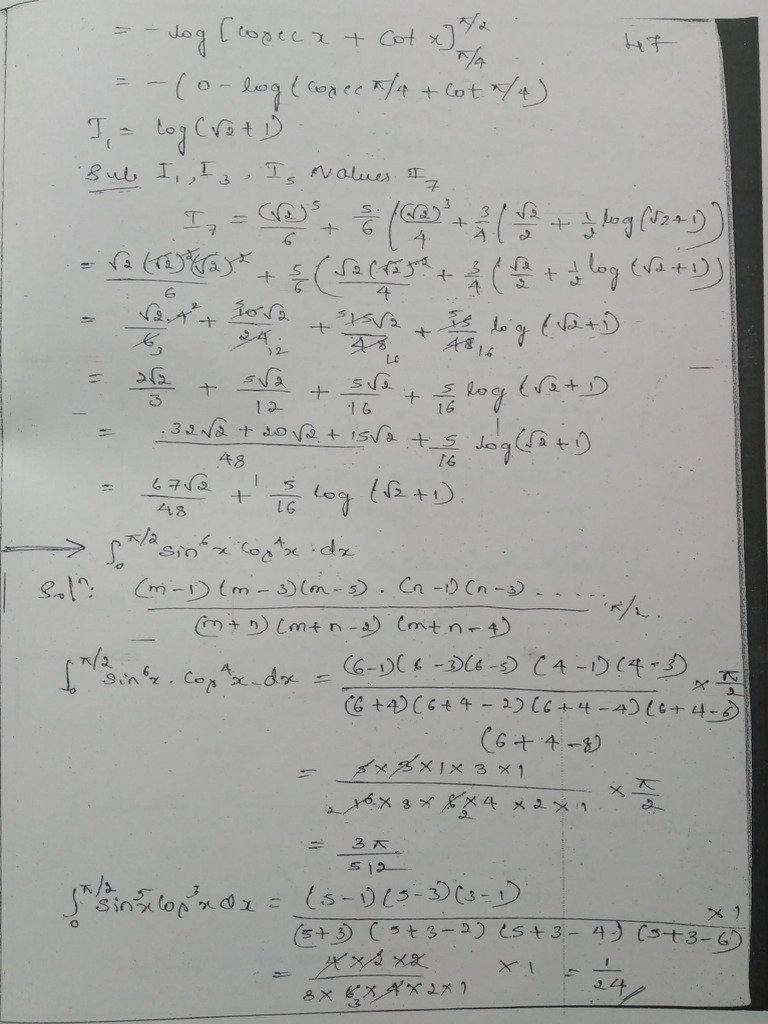 = - log [cosec x + cot x]^{π/2}_{π/4} 47
= - (0 - log (cosec π/4 + cot π/4)
I₁ = log (√2 + 1)
Sub I₁, I₃, I₅ values I₇
I₇ = (√2)⁵/6 + 5/6 ((√2)³/4 + 3/4 (√2/2 + 1/2 log (√2+1))
= √2 (√2)²(√2)²/6 + 5/6 (√2(√2)²/4 + 3/4 (√2/2 + 1/2 log (√2+1))
= √2.4/6 + 10√2/24 + 15√2/48 + 15/48 log (√2+1)
= 2√2/3 + 5√2/12 + 5√2/16 + 5/16 log (√2+1)
= 32√2 + 20√2 + 15√2/48 + 5/16 log (√2+1)
= 67√2/48 + 5/16 log (√2+1)
→ ∫₀^{π/2} sin⁶x cos⁴x . dx
Solⁿ: (m-1) (m-3)(m-5) . (n-1)(n-3) ...... / (m+n) (m+n-2) (m+n-4) . π/2.
∫₀^{π/2} sin⁶x . cos⁴x . dx = (6-1)(6-3)(6-5) (4-1)(4-3) / (6+4)(6+4-2)(6+4-4)(6+4-6) × π/2
(6+4-8)
= 5×3×1×3×1 / 10×8×6×4×2×1 × π/2
= 3π/512
∫₀^{π/2} sin⁵x cos³x dx = (5-1)(5-3)(3-1) / (5+3) (5+3-2) (5+3-4) (5+3-6) ×1
= 4×2×2 / 8×6×4×2×1 ×1 = 1/24